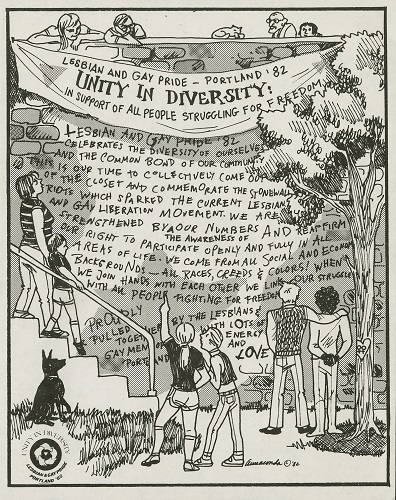 LESBIAN AND GAY PRIDE - PORTLAND '82
UNITY IN DIVERSITY:
IN SUPPORT OF ALL PEOPLE STRUGGLING FOR FREEDOM
LESBIAN AND GAY PRIDE '82
CELEBRATES THE DIVERSITY OF OURSELVES
AND THE COMMON BOND OF OUR COMMUNITY
THIS IS OUR TIME TO COLLECTIVELY COME OUT
OF THE CLOSET AND COMMEMORATE THE STONEWALL
RIOTS WHICH SPARKED THE CURRENT LESBIAN
AND GAY LIBERATION MOVEMENT. WE ARE
STRENGTHENED BY OUR NUMBERS AND REAFFIRM
THE AWARENESS OF
OUR RIGHT TO PARTICIPATE OPENLY AND FULLY IN ALL
AREAS OF LIFE. WE COME FROM ALL SOCIAL AND ECONOMIC
BACKGROUNDS - ALL RACES, CREEDS & COLORS! WHEN
WE JOIN HANDS WITH EACH OTHER WE LINK OUR STRUGGLE
WITH ALL PEOPLE FIGHTING FOR FREEDOM
PROUDLY
PULLED TOGETHER BY THE LESBIANS &
GAY MEN OF PORTLAND
WITH LOTS OF
ENERGY
AND
LOVE
UNITY IN DIVERSITY
LESBIAN & GAY PRIDE
PORTLAND '82
Annaconda © '82